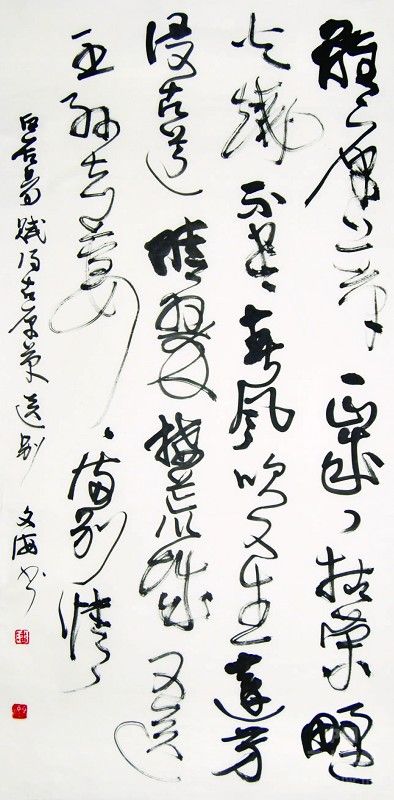 離離原上草一歲一枯榮野
火燒不盡春風吹又生遠芳
侵古道晴翠接荒城又送
王孫去萋萋滿別情
白居易賦得古原草送別 文海书